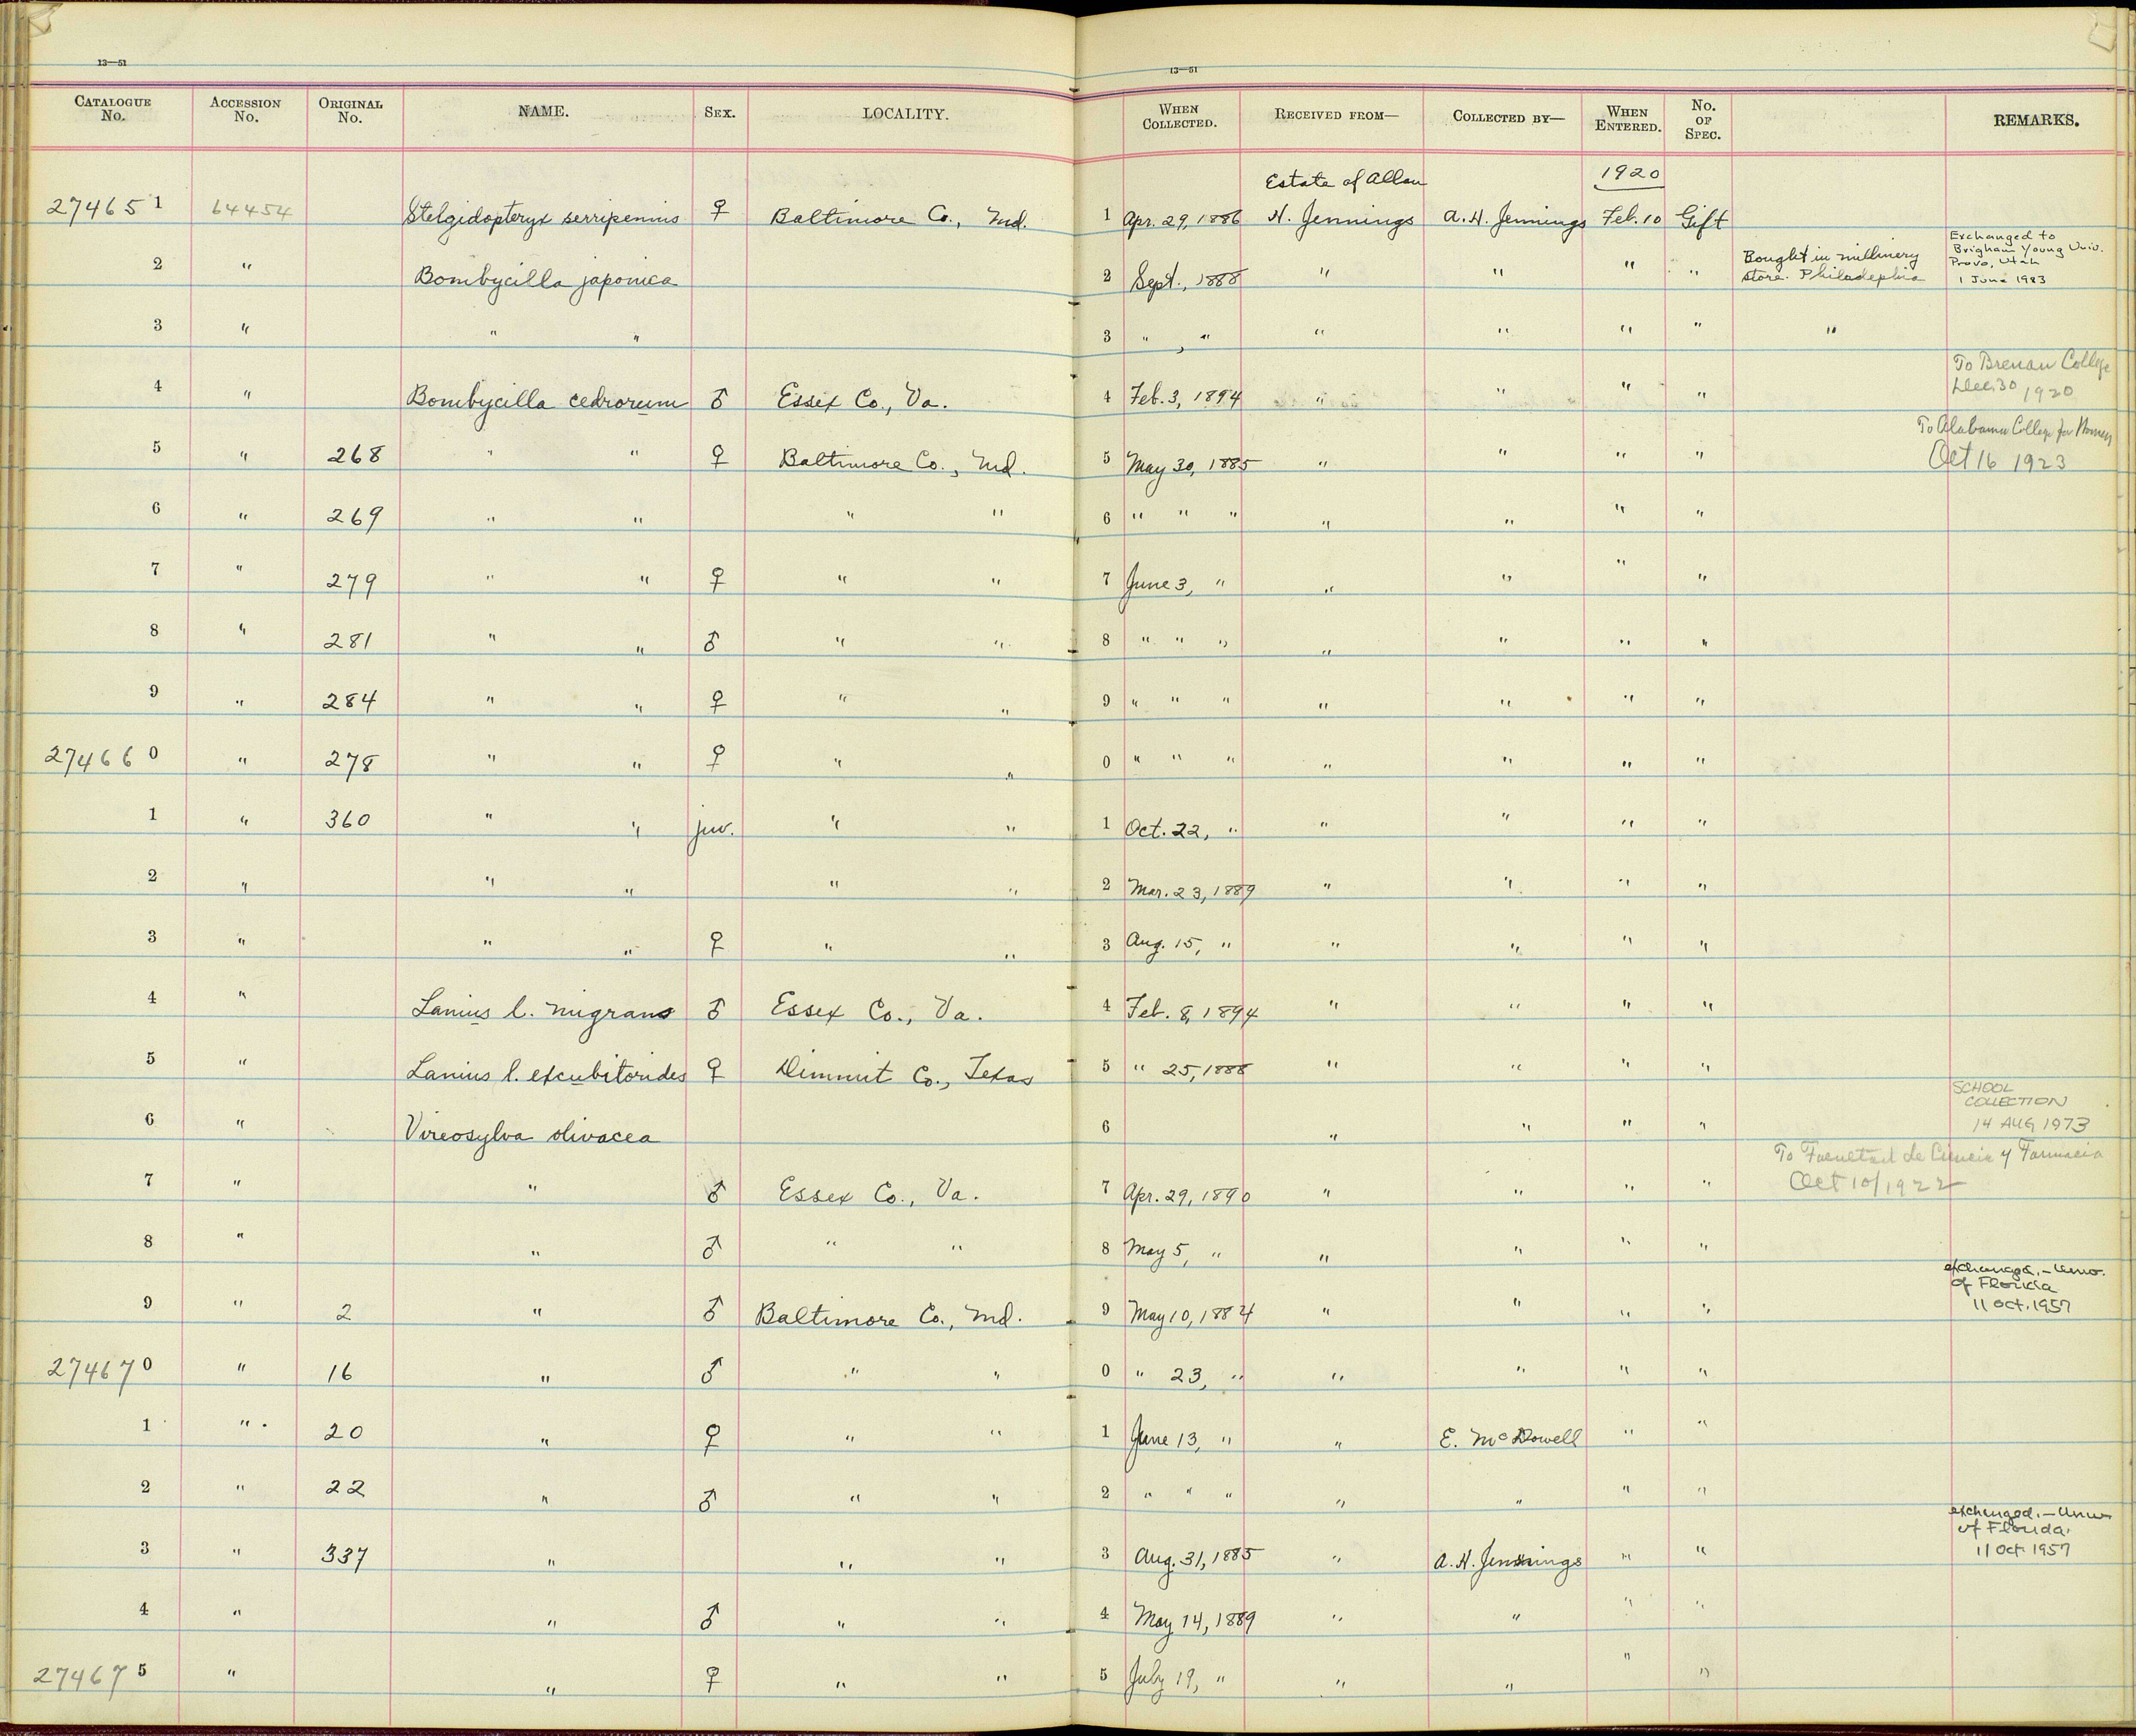 13—51 13—51
CATALOGUE No. ACCESSION No. ORIGINAL No. NAME. SEX. LOCALITY. WHEN COLLECTED. RECEIVED FROM— COLLECTED BY— WHEN ENTERED. No. OF SPEC. REMARKS.
Estate of Allan 1920
27465 1 64454 Stelgidopteryx serripennis ♀ Baltimore Co., Md. 1 Apr. 29, 1886 H. Jennings A. H. Jennings Feb. 10 Gift
2 " Bombycilla japonica 2 Sept., 1888 " " " " Bought in millinery store. Philadephia Exchanged to Brigham Young Univ. Provo, Utah 1 June 1983
3 " " " 3 " , " " " " " "
4 " Bombycilla cedrorum ♂ Essex Co., Va. 4 Feb. 3, 1894 " " " " To Brenau College Dec. 30 1920
5 " 268 " " ♀ Baltimore Co., Md. 5 May 30, 1885 " " " " To Alabama College for Women Oct 16 1923
6 " 269 " " " " 6 " " " " " " "
7 " 279 " " ♀ " " 7 June 3, " " " " "
8 " 281 " " ♂ " " 8 " " " " " " "
9 " 284 " " ♀ " " 9 " " " " " " "
27466 0 " 278 " " ♀ " " 0 " " " " " " "
1 " 360 " " juv. " " 1 Oct. 22, " " " " "
2 " " " " " 2 Mar. 23, 1889 " " " "
3 " " " ♀ " " 3 Aug. 15, " " " " "
4 " Lanius l. migrans ♂ Essex Co., Va. 4 Feb. 8, 1894 " " " "
5 " Lanius l. excubitorides ♀ Dimmit Co., Texas 5 " 25, 1888 " " " "
6 " Vireosylva olivacea 6 " " " " SCHOOL COLLECTION 14 AUG 1973
7 " " ♂ Essex Co., Va. 7 Apr. 29, 1890 " " " " To Facultad de Ciencia y Farmacia Oct 10/1922
8 " " ♂ " " 8 May 5, " " " " "
9 " 2 " ♂ Baltimore Co., Md. 9 May 10, 1884 " " " " exchanged. — Univ. of Florida 11 Oct. 1957
27467 0 " 16 " ♂ " " 0 " 23, " " " " "
1 " 20 " ♀ " " 1 June 13, " " E. McDowell " "
2 " 22 " ♂ " " 2 " " " " " " "
3 " 337 " " " 3 Aug. 31, 1885 " A. H. Jennings " " exchanged. — Univ of Florida. 11 Oct. 1957
4 " " ♂ " " 4 May 14, 1889 " " " "
27467 5 " " ♀ " " 5 July 19, " " " " "